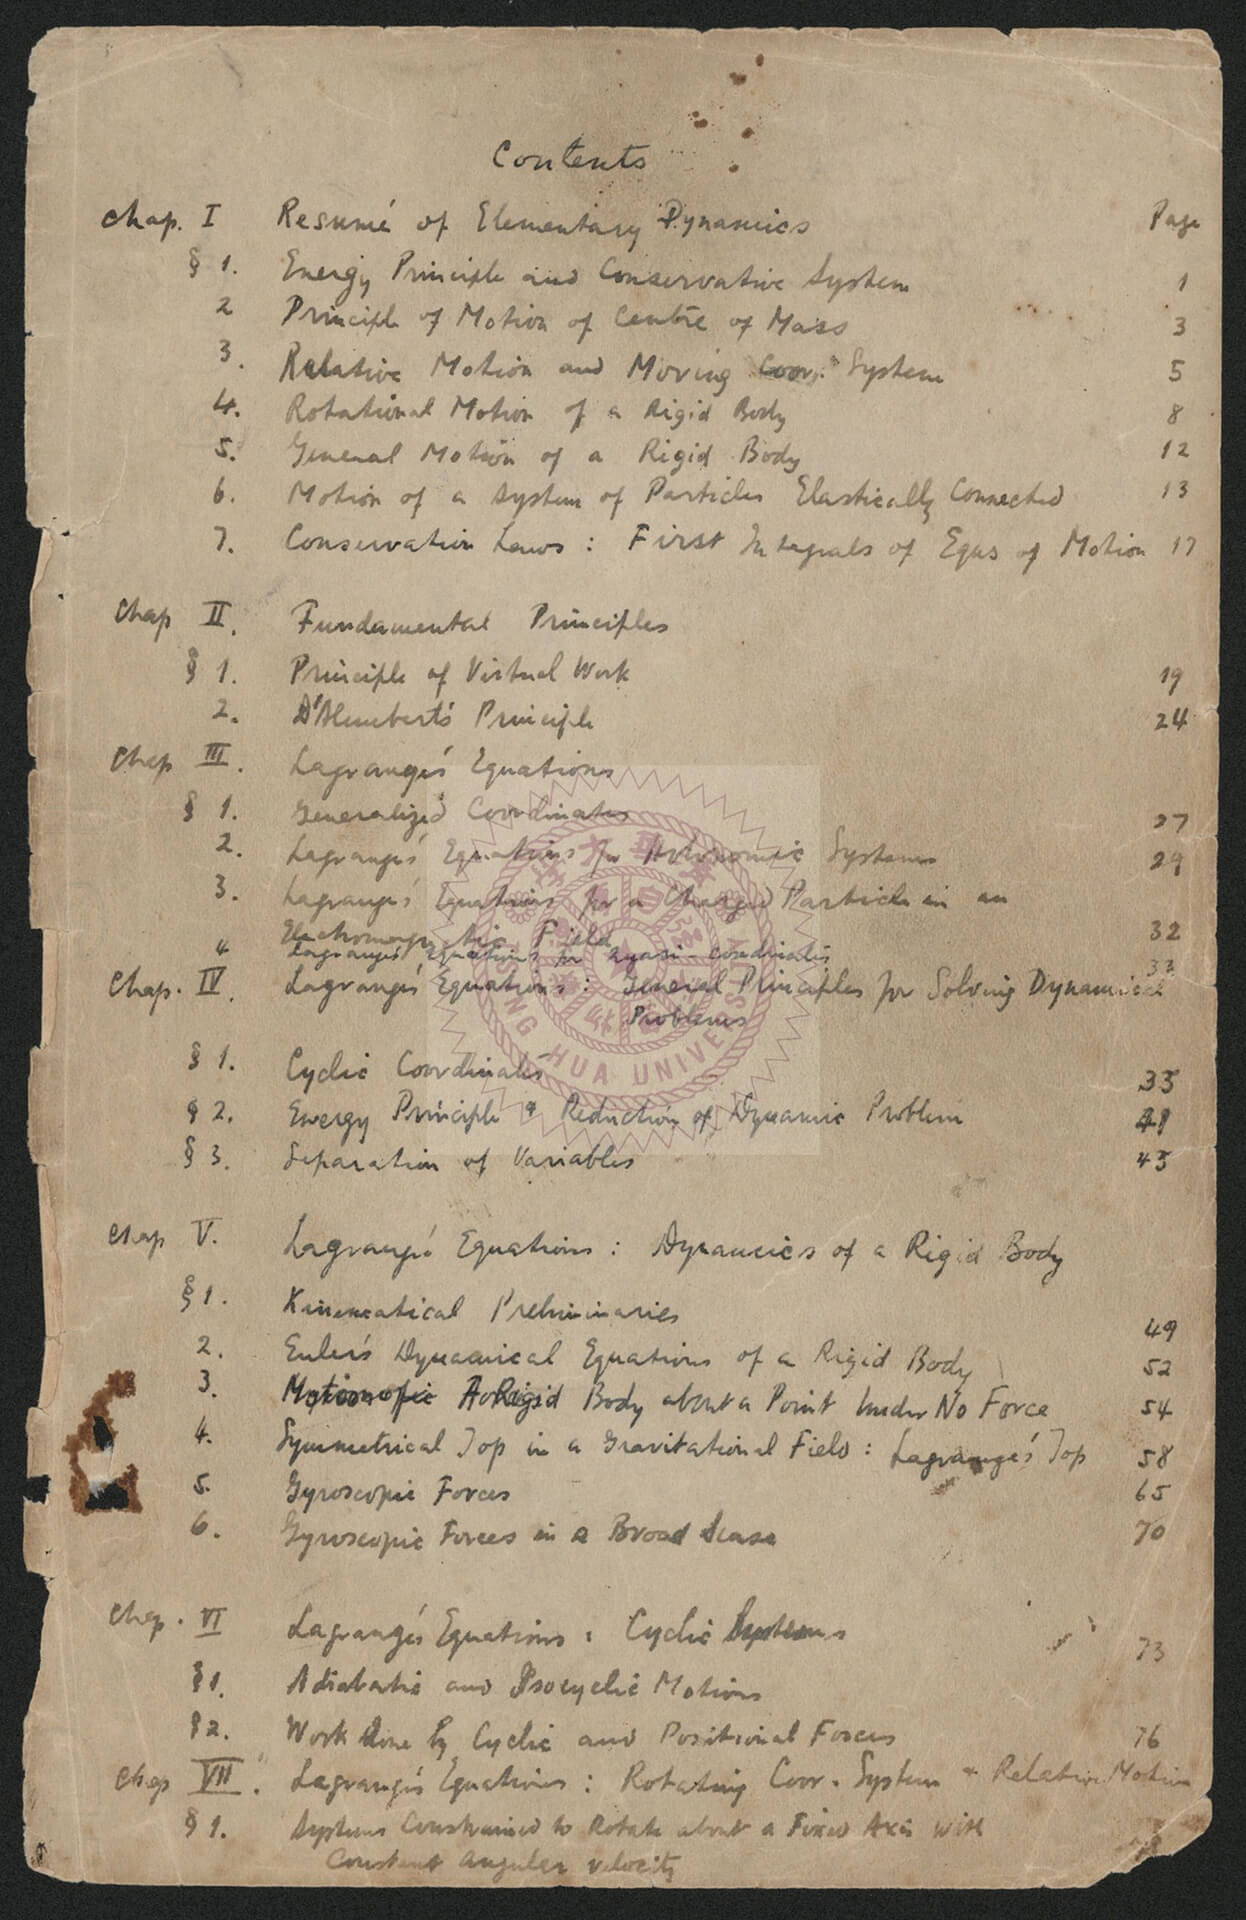 Contents
Chap. I Resumé of Elementary Dynamics Page
§ 1. Energy Principle and Conservative System 1
2 Principle of Motion of Centre of Mass 3
3. Relative Motion and Moving Coor. System 5
4. Rotational Motion of a Rigid Body 8
5. General Motion of a Rigid Body 12
6. Motion of a System of Particles Elastically Connected 13
7. Conservation Laws : First Integrals of Eqns of Motion 17
Chap II. Fundamental Principles
§ 1. Principle of Virtual Work 19
2. D'Alembert's Principle 24
Chap III. Lagrange's Equations
§ 1. Generalized Coordinates 27
2. Lagrange's Equations for Holonomic Systems 29
3. Lagrange's Equations for a Charged Particle in an
Electromagnetic Field 32
4 Lagrange's Equations for quasi-coordinates 33
Chap. IV. Lagrange's Equations : General Principles for Solving Dynamical
Problems
§ 1. Cyclic Coordinates 35
§ 2. Energy Principle & Reduction of Dynamic Problem
§ 3. Separation of Variables 45
Chap V. Lagrange's Equations : Dynamics of a Rigid Body
§ 1. Kinematical Preliminaries 49
2. Euler's Dynamical Equations of a Rigid Body 52
3. Motion of a Rigid Body about a Point Under No Force 54
4. Symmetrical Top in a Gravitational Field : Lagrange's Top 58
5. Gyroscopic Forces 65
6. Gyroscopic Forces in a Broad Sense 70
Chap. VI Lagrange's Equations : Cyclic Systems
§1. Adiabatic and Isocyclic Motions 73
§2. Work done by Cyclic and Positional Forces 76
Chap VII. Lagrange's Equations : Rotating Coor. System & Relative Motion
§ 1. Systems Constrained to Rotate about a Fixed Axis with
Constant angular velocity
TSING HUA UNIVERSITY